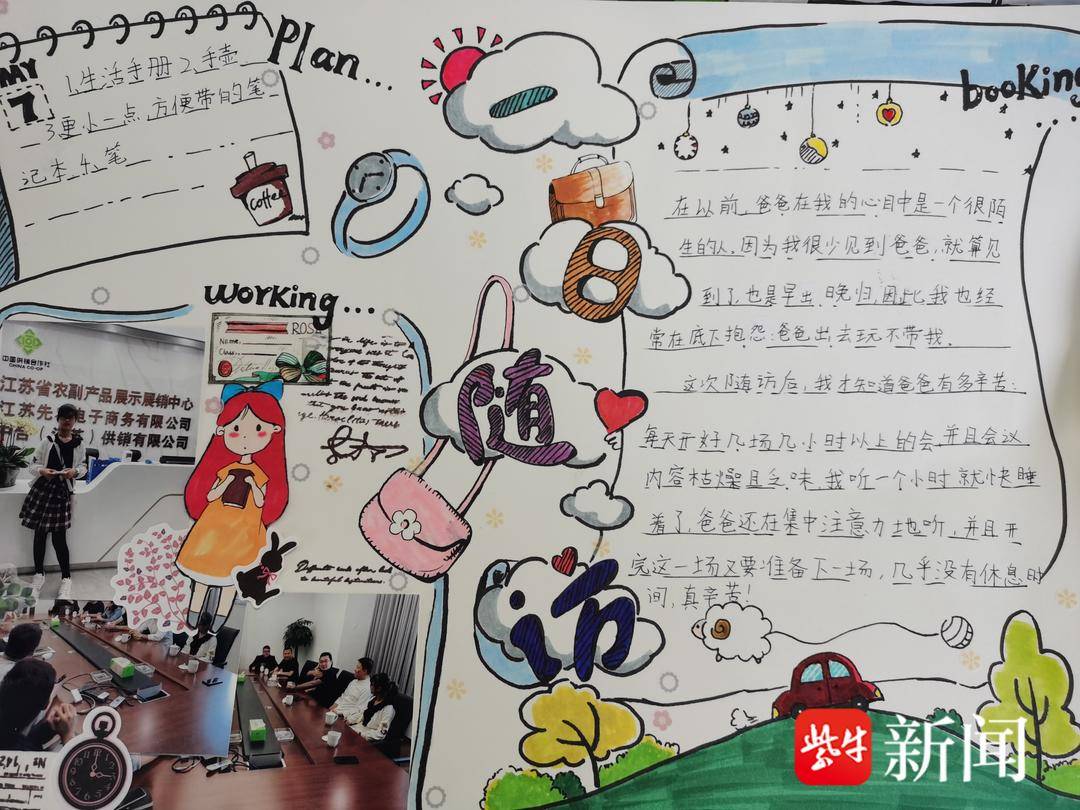 Plan...
MAY
7
1.生活手册 2.手壶
3.更小一点,方便带的笔
记本 4.笔
coffee
一
日
随
访
booking
...
在以前,爸爸在我的心目中是一个很陌
生的人,因为我很少见到爸爸,就算见
到了,也是早出晚归,因此,我也经
常在底下抱怨:爸爸出去玩不带我.
这次随访后,我才知道爸爸有多辛苦:
每天开好几场几小时以上的会,并且会议
内容枯燥且乏味,我听一个小时就快睡
着了,爸爸还在集中注意力地听,并且开
完这一场又要准备下一场,几乎没有休息时
间,真辛苦!
working...
ROSE
Name:
Class:
中国供销合作社
CHINA CO-OP
江苏省农副产品展示展销中心
江苏先 电子商务有限公司
供销有限公司
紫牛
新闻